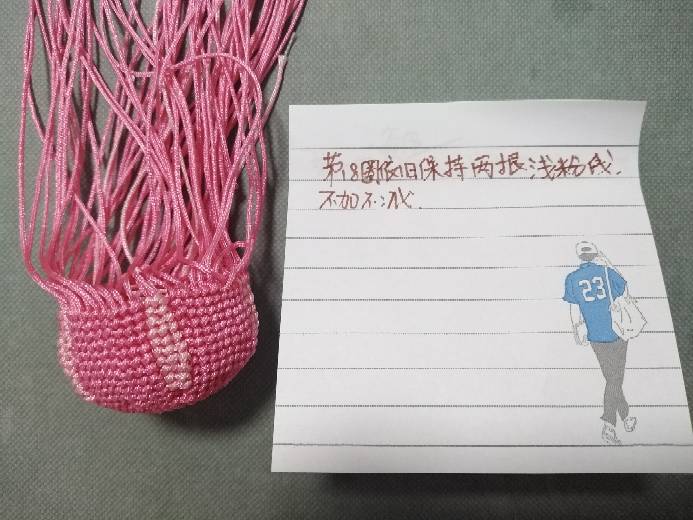 第18圈依旧保持两根浅粉线.
不加不减.
23